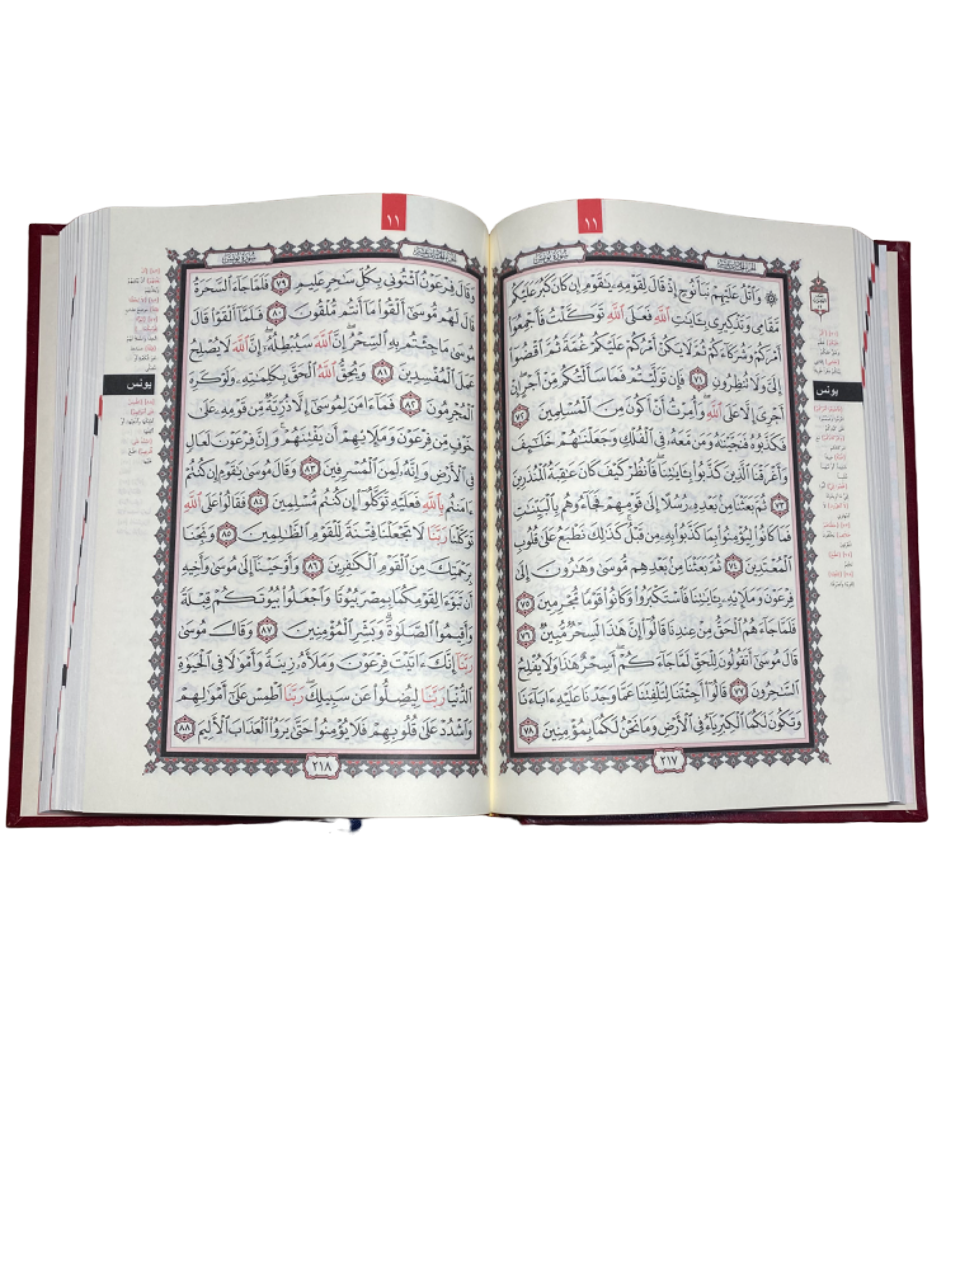 ١١
سورة يونس
يونس
۞ وَٱتْلُ عَلَيْهِمْ نَبَأَ نُوحٍ إِذْ قَالَ لِقَوْمِهِۦ يَٰقَوْمِ إِن كَانَ كَبُرَ عَلَيْكُم
مَّقَامِى وَتَذْكِيرِى بِـَٔايَٰتِ ٱللَّهِ فَعَلَى ٱللَّهِ تَوَكَّلْتُ فَأَجْمِعُوٓا۟
أَمْرَكُمْ وَشُرَكَآءَكُمْ ثُمَّ لَا يَكُنْ أَمْرُكُمْ عَلَيْكُمْ غُمَّةً ثُمَّ ٱقْضُوٓا۟
إِلَىَّ وَلَا تُنظِرُونِ ٧١ فَإِن تَوَلَّيْتُمْ فَمَا سَأَلْتُكُم مِّنْ أَجْرٍ إِنْ
أَجْرِىَ إِلَّا عَلَى ٱللَّهِ وَأُمِرْتُ أَنْ أَكُونَ مِنَ ٱلْمُسْلِمِينَ ٧٢
فَكَذَّبُوهُ فَنَجَّيْنَٰهُ وَمَن مَّعَهُۥ فِى ٱلْفُلْكِ وَجَعَلْنَٰهُمْ خَلَٰٓئِفَ
وَأَغْرَقْنَا ٱلَّذِينَ كَذَّبُوا۟ بِـَٔايَٰتِنَا فَٱنظُرْ كَيْفَ كَانَ عَٰقِبَةُ ٱلْمُنذَرِينَ
٧٣ ثُمَّ بَعَثْنَا مِنۢ بَعْدِهِۦ رُسُلًا إِلَىٰ قَوْمِهِمْ فَجَآءُوهُم بِٱلْبَيِّنَٰتِ
فَمَا كَانُوا۟ لِيُؤْمِنُوا۟ بِمَا كَذَّبُوا۟ بِهِۦ مِن قَبْلُ كَذَٰلِكَ نَطْبَعُ عَلَىٰ قُلُوبِ
ٱلْمُعْتَدِينَ ٧٤ ثُمَّ بَعَثْنَا مِنۢ بَعْدِهِم مُّوسَىٰ وَهَٰرُونَ إِلَىٰ
فِرْعَوْنَ وَمَلَإِي۟هِۦ بِـَٔايَٰتِنَا فَٱسْتَكْبَرُوا۟ وَكَانُوا۟ قَوْمًا مُّجْرِمِينَ ٧٥
فَلَمَّا جَآءَهُمُ ٱلْحَقُّ مِنْ عِندِنَا قَالُوٓا۟ إِنَّ هَٰذَا لَسِحْرٌ مُّبِينٌ ٧٦
قَالَ مُوسَىٰٓ أَتَقُولُونَ لِلْحَقِّ لَمَّا جَآءَكُمْ أَسِحْرٌ هَٰذَا وَلَا يُفْلِحُ
ٱلسَّٰحِرُونَ ٧٧ قَالُوٓا۟ أَجِئْتَنَا لِتَلْفِتَنَا عَمَّا وَجَدْنَا عَلَيْهِ ءَابَآءَنَا
وَتَكُونَ لَكُمَا ٱلْكِبْرِيَآءُ فِى ٱلْأَرْضِ وَمَا نَحْنُ لَكُمَا بِمُؤْمِنِينَ ٧٨
٢١٧
١١
سورة يونس
يونس
وَقَالَ فِرْعَوْنُ ٱئْتُونِى بِكُلِّ سَٰحِرٍ عَلِيمٍ ٧٩ فَلَمَّا جَآءَ ٱلسَّحَرَةُ
قَالَ لَهُم مُّوسَىٰٓ أَلْقُوا۟ مَآ أَنتُم مُّلْقُونَ ٨٠ فَلَمَّآ أَلْقَوْا۟ قَالَ
مُوسَىٰ مَا جِئْتُم بِهِ ٱلسِّحْرُ إِنَّ ٱللَّهَ سَيُبْطِلُهُۥٓ إِنَّ ٱللَّهَ لَا يُصْلِحُ
عَمَلَ ٱلْمُفْسِدِينَ ٨١ وَيُحِقُّ ٱللَّهُ ٱلْحَقَّ بِكَلِمَٰتِهِۦ وَلَوْ كَرِهَ
ٱلْمُجْرِمُونَ ٨٢ فَمَآ ءَامَنَ لِمُوسَىٰٓ إِلَّا ذُرِّيَّةٌ مِّن قَوْمِهِۦ عَلَىٰ
خَوْفٍ مِّن فِرْعَوْنَ وَمَلَإِي۟هِمْ أَن يَفْتِنَهُمْ وَإِنَّ فِرْعَوْنَ لَعَالٍ
فِى ٱلْأَرْضِ وَإِنَّهُۥ لَمِنَ ٱلْمُسْرِفِينَ ٨٣ وَقَالَ مُوسَىٰ يَٰقَوْمِ إِن كُنتُمْ
ءَامَنتُم بِٱللَّهِ فَعَلَيْهِ تَوَكَّلُوٓا۟ إِن كُنتُم مُّسْلِمِينَ ٨٤ فَقَالُوا۟ عَلَى ٱللَّهِ
تَوَكَّلْنَا رَبَّنَا لَا تَجْعَلْنَا فِتْنَةً لِّلْقَوْمِ ٱلظَّٰلِمِينَ ٨٥ وَنَجِّنَا
بِرَحْمَتِكَ مِنَ ٱلْقَوْمِ ٱلْكَٰفِرِينَ ٨٦ وَأَوْحَيْنَآ إِلَىٰ مُوسَىٰ وَأَخِيهِ
أَن تَبَوَّءَا لِقَوْمِكُمَا بِمِصْرَ بُيُوتًا وَٱجْعَلُوا۟ بُيُوتَكُمْ قِبْلَةً
وَأَقِيمُوا۟ ٱلصَّلَوٰةَ وَبَشِّرِ ٱلْمُؤْمِنِينَ ٨٧ وَقَالَ مُوسَىٰ
رَبَّنَآ إِنَّكَ ءَاتَيْتَ فِرْعَوْنَ وَمَلَأَهُۥ زِينَةً وَأَمْوَٰلًا فِى ٱلْحَيَوٰةِ
ٱلدُّنْيَا رَبَّنَا لِيُضِلُّوا۟ عَن سَبِيلِكَ رَبَّنَا ٱطْمِسْ عَلَىٰٓ أَمْوَٰلِهِمْ
وَٱشْدُدْ عَلَىٰ قُلُوبِهِمْ فَلَا يُؤْمِنُوا۟ حَتَّىٰ يَرَوُا۟ ٱلْعَذَابَ ٱلْأَلِيمَ ٨٨
٢١٨